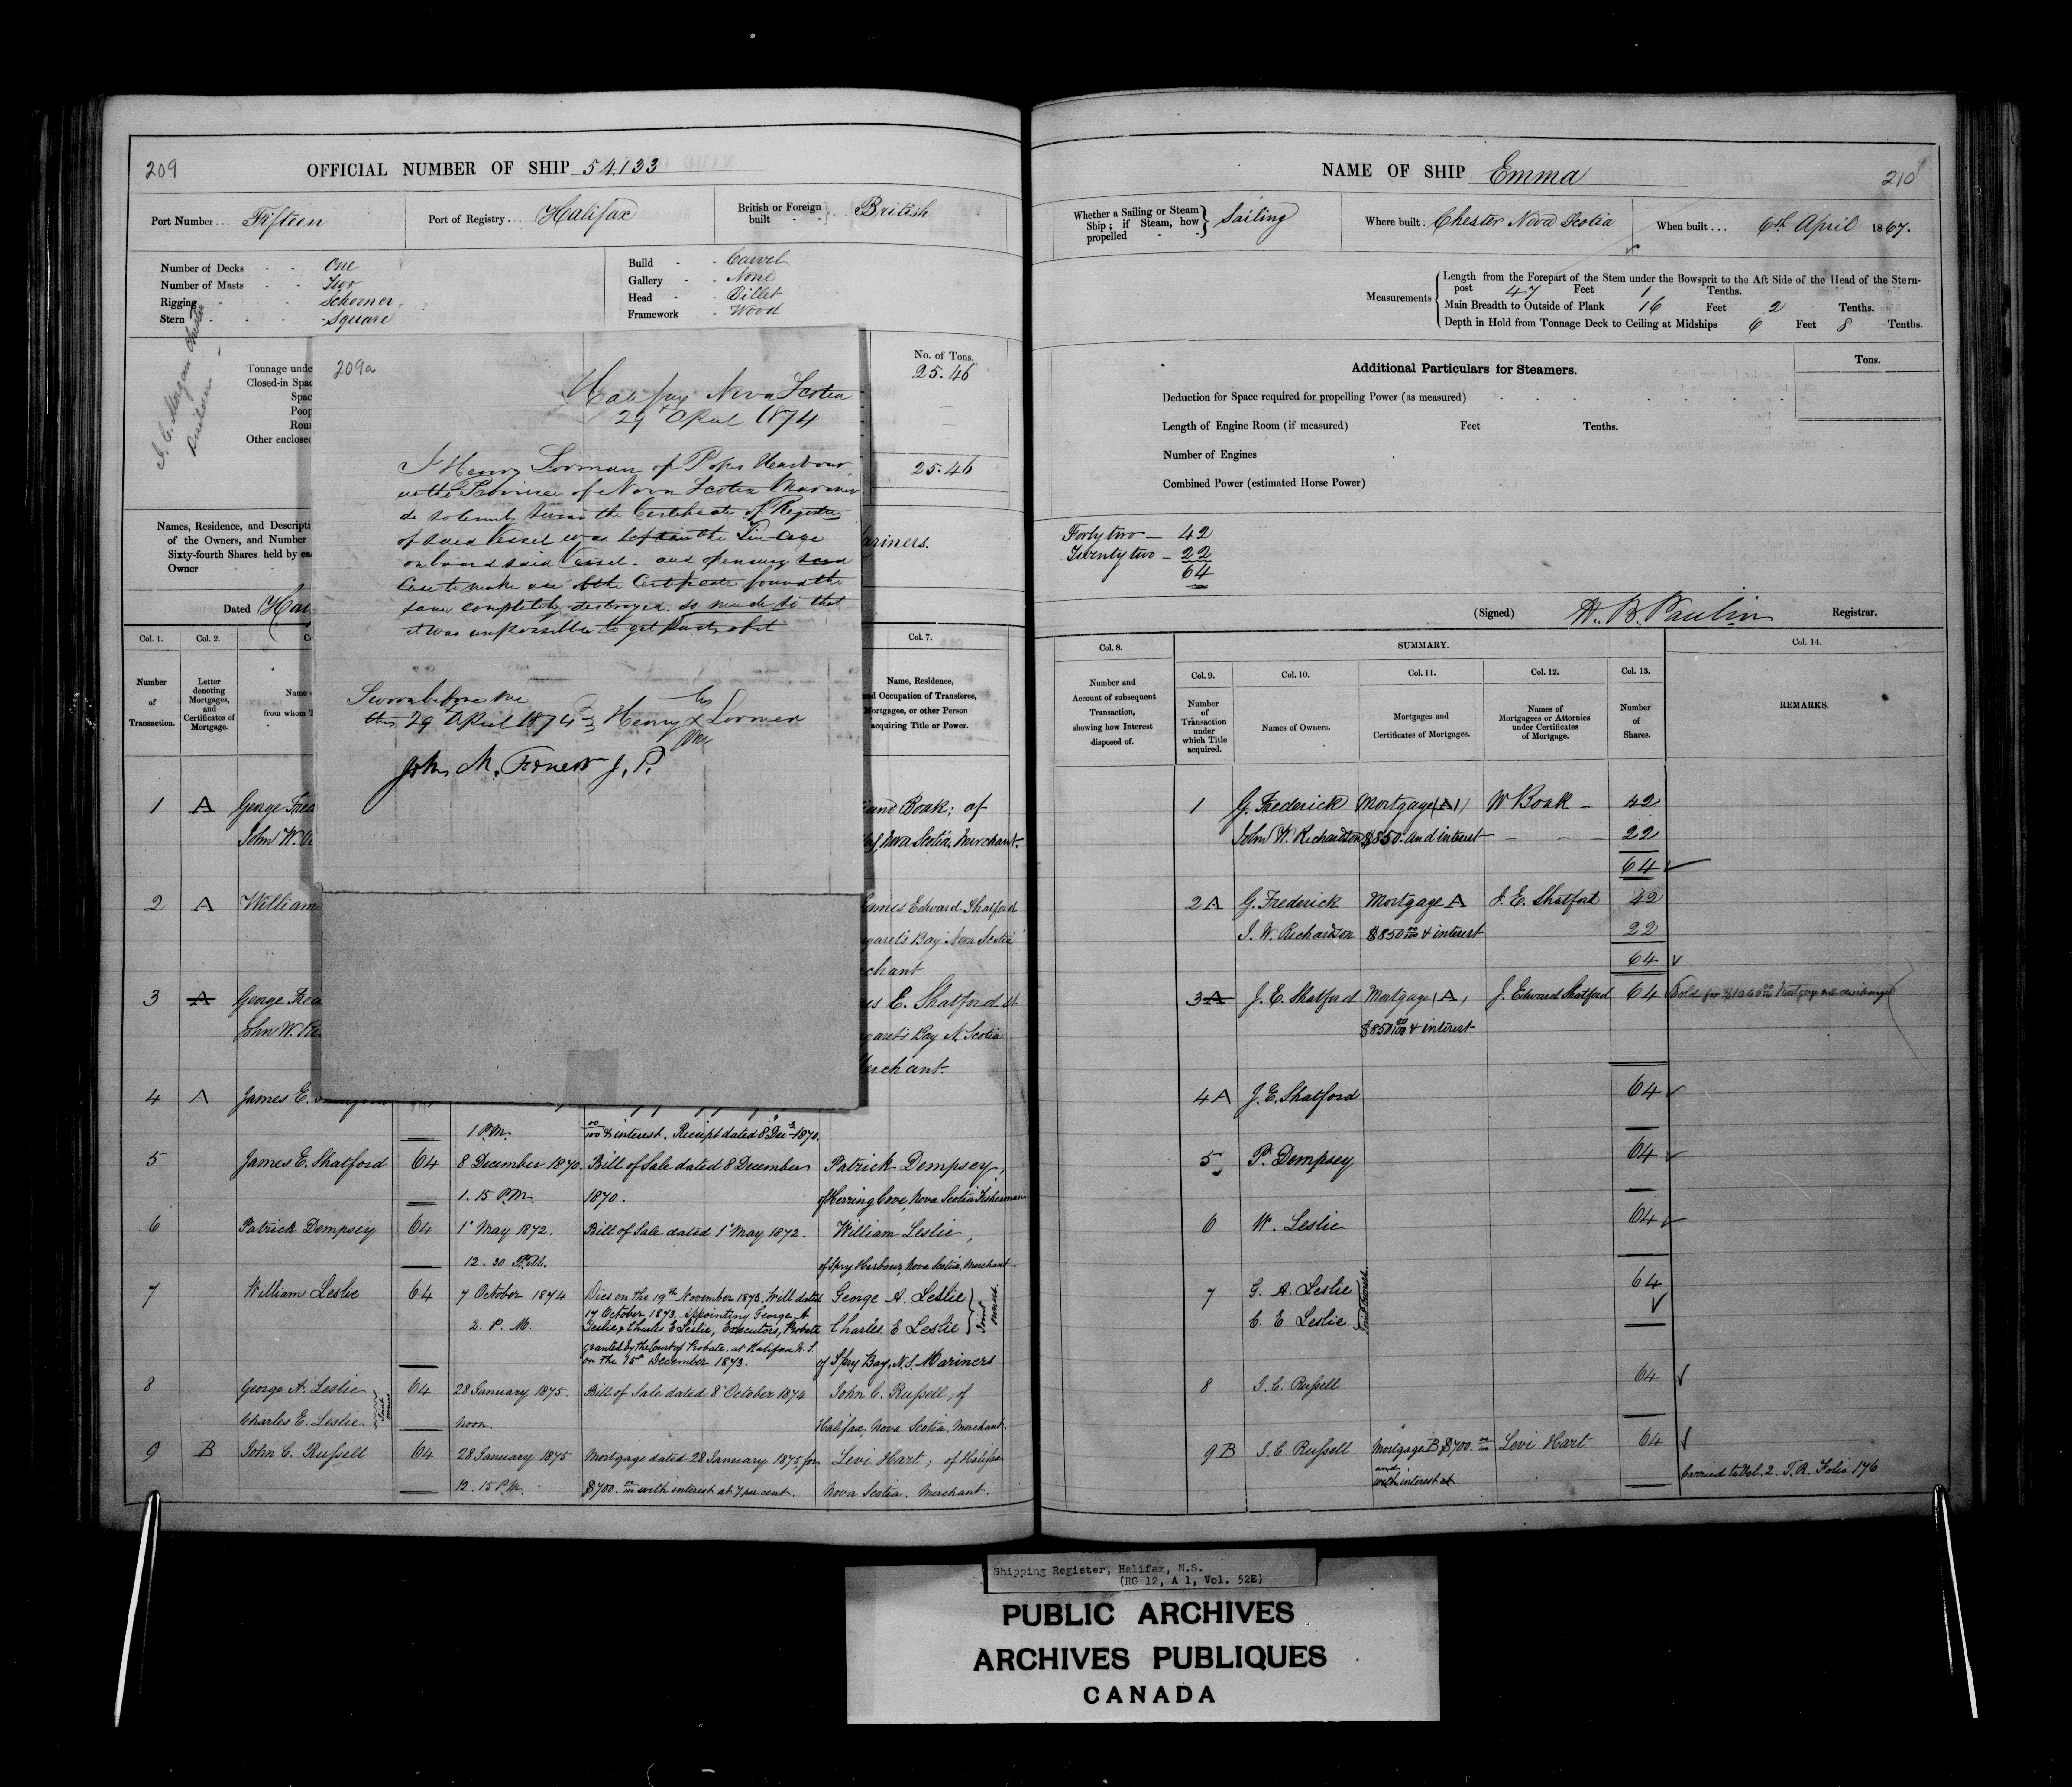 209
OFFICIAL NUMBER OF SHIP 54,133
Port Number... Fifteen
Port of Registry... Halifax
British or Foreign built - - British
Number of Decks - - One
Number of Masts - - Two
Rigging - - - Schooner
Stern - - - - Square
Build - - Carvel
Gallery - - None
Head - - Billet
Framework - Wood
Tonnage unde
Closed-in Spac
Spac
Poop
Rou
Other enclosed
No. of Tons.
25.46
25.46
Names, Residence, and Descripti
of the Owners, and Number
Sixty-fourth Shares held by ea
Owner - -
ariners.
Dated Ha
209a
Halifax Nova Scotia
29 April 1874
I Henry of Popes Harbour
in the Province of Nova Scotia Mariner
do solemnly swear the Certificate of Registry
of said Vessel was in the Tin Case
on board said Vessel. and opening said
Case to make use of the Certificate found the
same completely destroyed. so much so that
it was impossible to get parts of it
Sworn before me
this 29 April 1874 Henry X
John M. J. P.
Col. 1.
Col. 2.
Col. 7.
Number of Transaction.
Letter denoting Mortgages, and Certificates of Mortgage.
Name
from whom T
Name, Residence,
nd Occupation of Transferee,
Mortgagee, or other Person
acquiring Title or Power.
1 A George Fred
John W.
and Boak; of
Nova Scotia, Merchant.
2 A William
James Edward Shatford
garet's Bay Nova Scotia
chant
3 A George Fred
John W.
es E. Shatford St
garet's Bay N. Scotia
erchant.
4 A James E.
1 P.M.
00/100 & interest. Receipt dated 8 Decr 1870.
5 James E. Shatford 64 8 December 1870. Bill of Sale dated 8 December Patrick Dempsey,
1.15 P.M. 1870. of Herring Cove, Nova Scotia Fisherman
6 Patrick Dempsey 64 1st May 1872. Bill of Sale dated 1st May 1872. William Leslie,
12.30 P.M. of Spry Harbour, Nova Scotia, Merchant.
7 William Leslie 64 7 October 1874 Dies on the 19th November 1873, Will dated George A. Leslie
17 October 1873, appointing George A
2. P. M. Leslie, & Charles E Leslie, Executors, Probate Charles E Leslie Joint Owners
granted by the Court of Probate, at Halifax N. S.
on the December 1873. of Spry Bay, N.S. Mariners
8 George A. Leslie 64 28 January 1875. Bill of Sale dated 8 October 1874 John C. Russell; of
Charles E. Leslie Joint Owners noon. Halifax, Nova Scotia, Merchant.
9 B John C. Russell 64 28 January 1875 Mortgage dated 28 January 1875, for Levi Hart; of Halifax
12.15 P.M. $700.00/100 with interest at 7 per cent. Nova Scotia. Merchant.
NAME OF SHIP Emma
210
Whether a Sailing or Steam Ship; if Steam, how propelled - - Sailing
Where built. Chester Nova Scotia
When built... 6th April 1867.
Measurements
Length from the Forepart of the Stem under the Bowsprit to the Aft Side of the Head of the Stern-
post 47 Feet 1 Tenths.
Main Breadth to Outside of Plank 16 Feet 2 Tenths.
Depth in Hold from Tonnage Deck to Ceiling at Midships 6 Feet 8 Tenths.
Additional Particulars for Steamers.
Tons.
Deduction for Space required for propelling Power (as measured)
Length of Engine Room (if measured) Feet Tenths.
Number of Engines
Combined Power (estimated Horse Power)
Forty two — 42
Twenty two — 22
64
(Signed) W. B. Paulin Registrar.
Col. 8.
SUMMARY.
Col. 14.
Col. 9.
Col. 10.
Col. 11.
Col. 12.
Col. 13.
Number and Account of subsequent Transaction, showing how Interest disposed of.
Number of Transaction under which Title acquired.
Names of Owners.
Mortgages and Certificates of Mortgages.
Names of Mortgagees or Attornies under Certificates of Mortgage.
Number of Shares.
REMARKS.
1 G. Frederick Mortgage (A) W Boak — 42
John W. Richardson $850. and interest — — 22
64
2 A G. Frederick Mortgage A J. E. Shatford 42
J. W. Richardson $850 00/100 & interest 22
64
3 A J. E. Shatford Mortgage (A, J. Edward Shatford 64 Sold for Mortgage
$850 00/100 & interest
4 A J. E. Shatford 64
5 P. Dempsey 64
6 W. Leslie 64
7 G. A. Leslie 64
C. E Leslie Joint Owners
8 J. C. Russell 64
9 B J. C. Russell Mortgage B $700.00/100 Levi Hart 64
and
with interest at
Carried to Vol. 2 T.R. Folio 176
Shipping Register, Halifax, N.S.
(RG 12, A 1, Vol. 52E)
PUBLIC ARCHIVES
ARCHIVES PUBLIQUES
CANADA